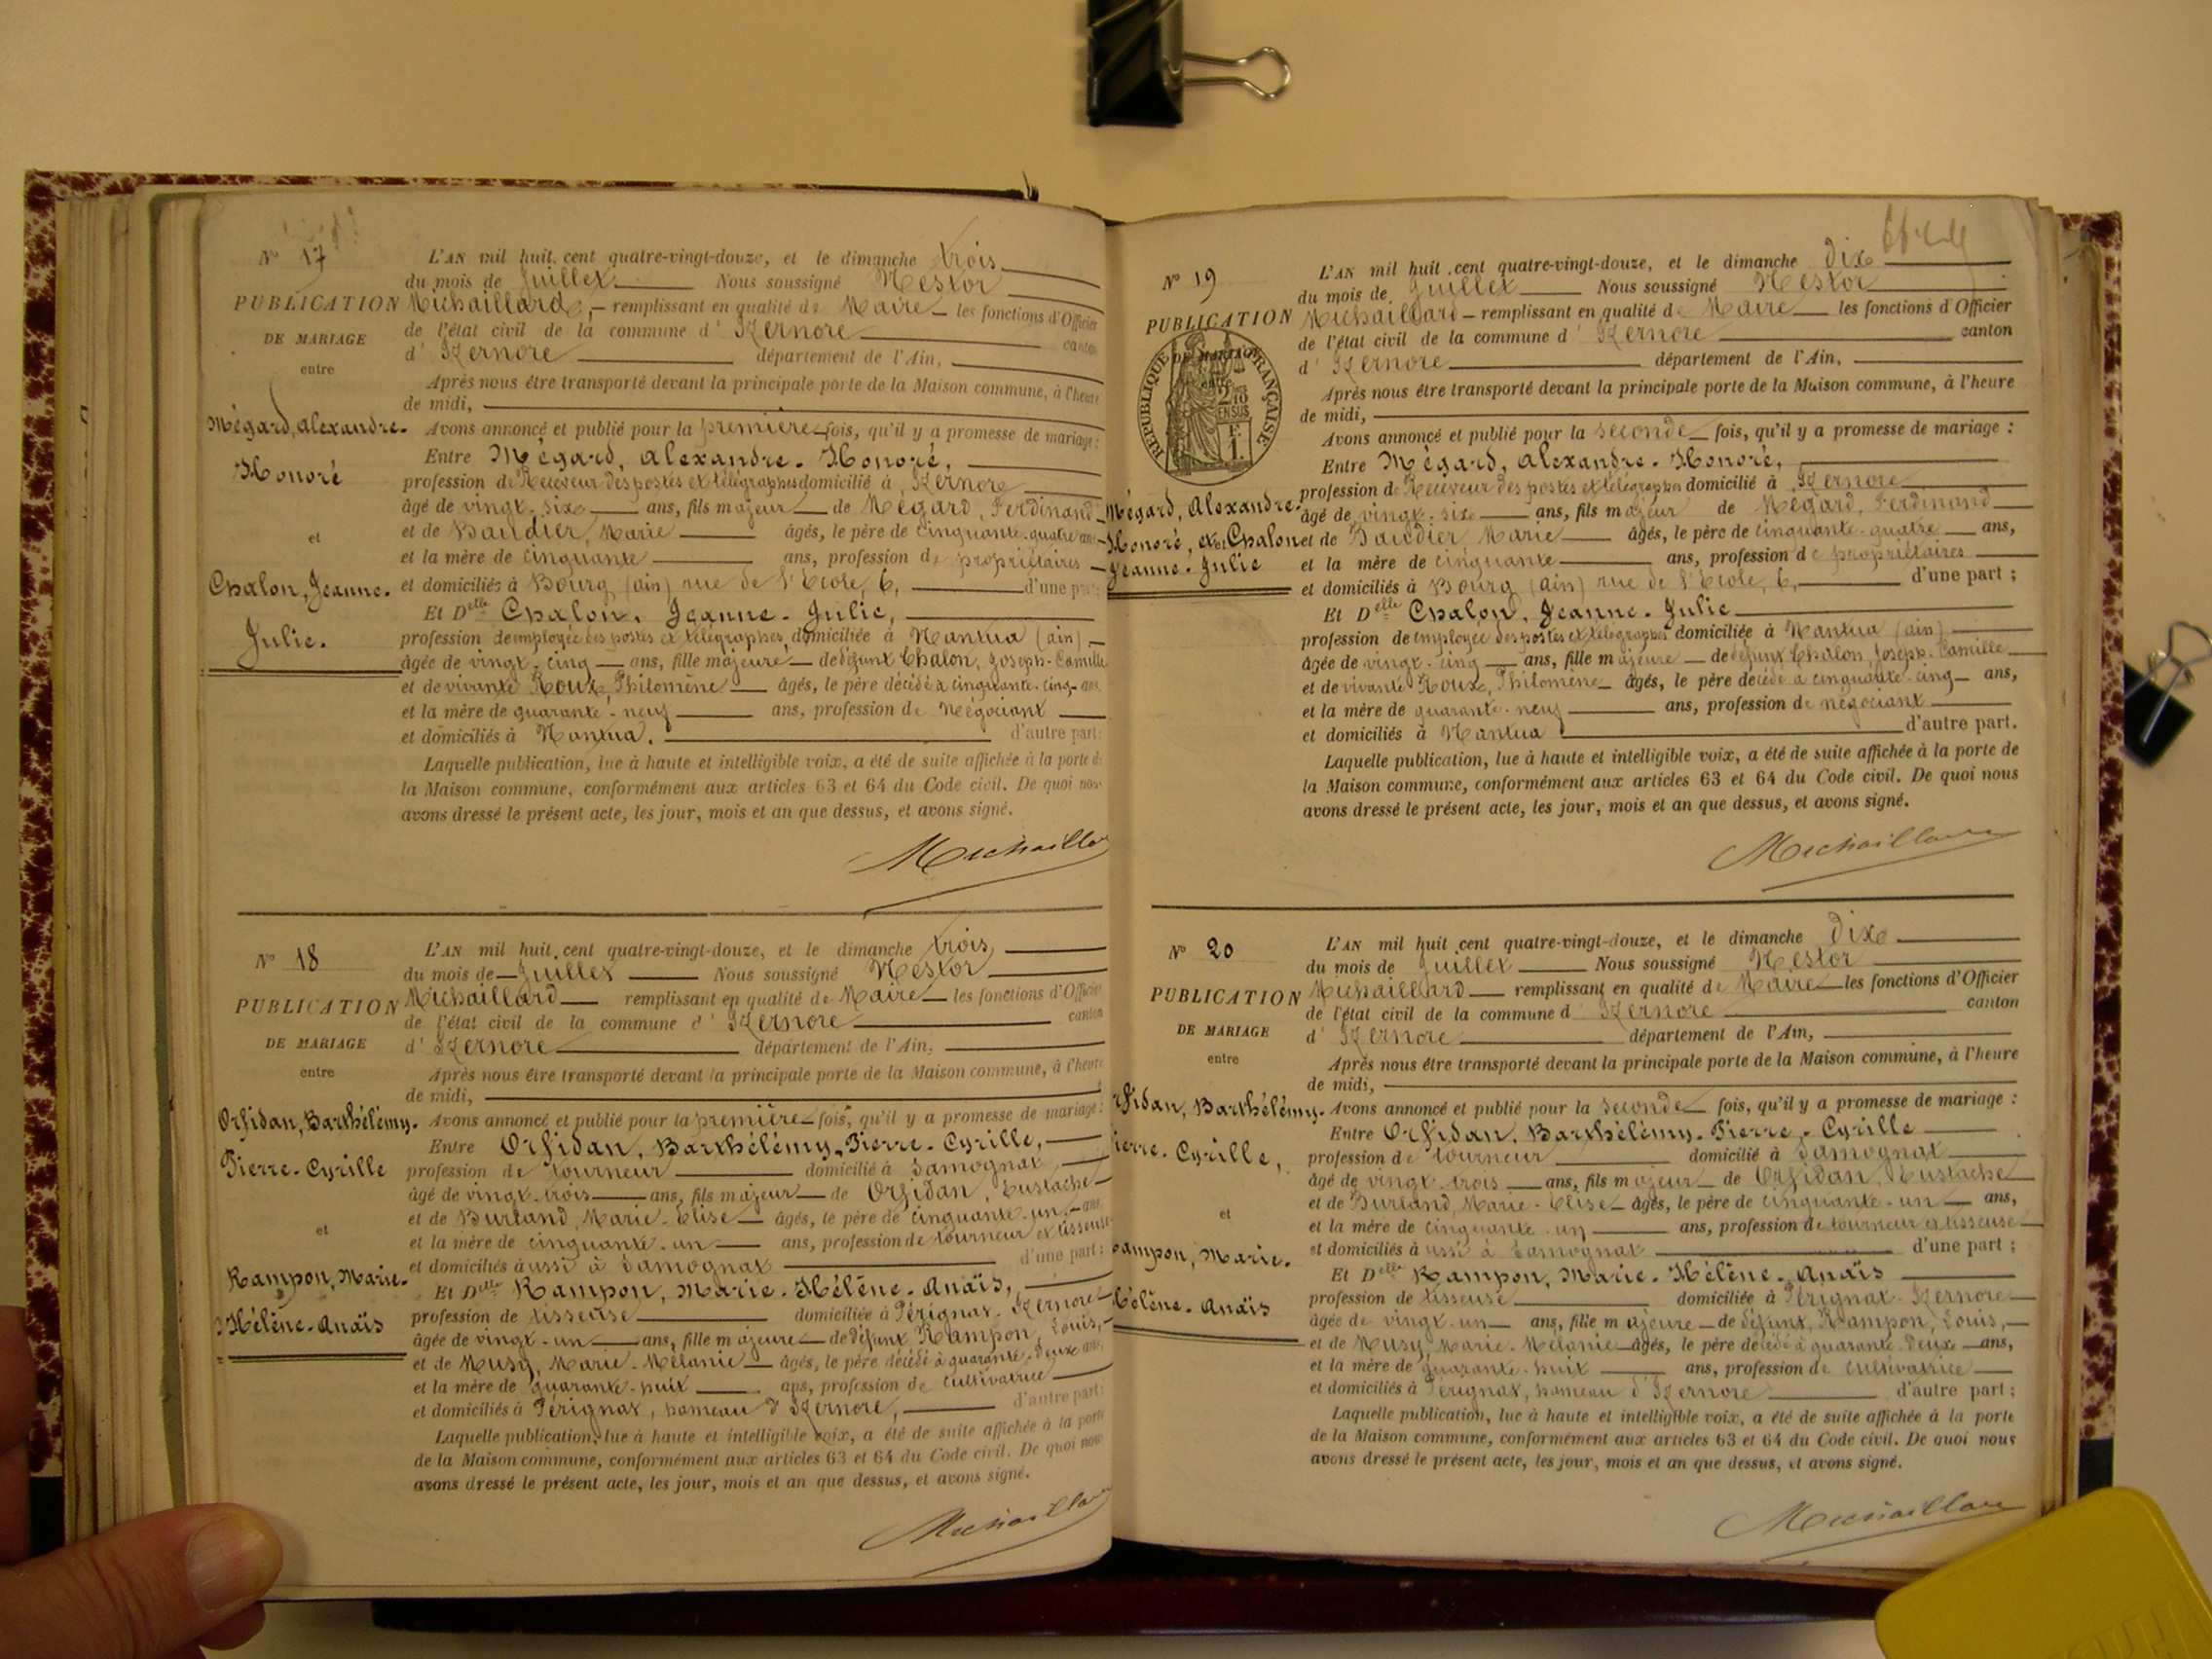 N° 17
PUBLICATION
DE MARIAGE
entre
Mégard, Alexandre-
Honoré
et
Chalon, Jeanne-
Julie.
L'AN mil huit cent quatre-vingt-douze, et le dimanche trois
du mois de Juillet Nous soussigné Nestor
Michaillard, remplissant en qualité de Maire les fonctions d'Officier
de l'état civil de la commune d'Izernore canton
d'Izernore département de l'Ain,
Après nous être transporté devant la principale porte de la Maison commune, à l'heure
de midi,
Avons annoncé et publié pour la première fois, qu'il y a promesse de mariage :
Entre Mégard, Alexandre-Honoré,
profession de Receveur des postes et télégraphes domicilié à Izernore
âgé de vingt-six ans, fils majeur de Mégard, Ferdinand
et de Baudier, Marie âgés, le père de cinquante-quatre ans
et la mère de cinquante ans, profession de propriétaires
et domiciliés à Bourg (ain) rue de l'Ecole, 6, d'une part;
Et Delle Chalon, Jeanne-Julie,
profession de employée des postes et télégraphes, domiciliée à Nantua (ain)
âgée de vingt-cinq ans, fille majeure de défunt Chalon, Joseph-Camille
et de vivante Roux, Philomène âgés, le père décédé à cinquante-cinq ans
et la mère de quarante-neuf ans, profession de négociant
et domiciliés à Nantua. d'autre part.
Laquelle publication, lue à haute et intelligible voix, a été de suite affichée à la porte de
la Maison commune, conformément aux articles 63 et 64 du Code civil. De quoi nous
avons dressé le présent acte, les jour, mois et an que dessus, et avons signé.
Michaillard
N° 18
PUBLICATION
DE MARIAGE
entre
Orfidan, Barthélémy-
Pierre-Cyrille
et
Rampon, Marie-
Hélène-Anaïs
L'AN mil huit cent quatre-vingt-douze, et le dimanche trois
du mois de Juillet Nous soussigné Nestor
Michaillard remplissant en qualité de Maire les fonctions d'Officier
de l'état civil de la commune d'Izernore canton
d'Izernore département de l'Ain,
Après nous être transporté devant la principale porte de la Maison commune, à l'heure
de midi,
Avons annoncé et publié pour la première fois, qu'il y a promesse de mariage :
Entre Orfidan, Barthélémy-Pierre-Cyrille,
profession de tourneur domicilié à Samognat
âgé de vingt-trois ans, fils majeur de Orfidan, Eustache
et de Burland, Marie-Elise âgés, le père de cinquante-un ans
et la mère de cinquante-un ans, profession de tourneur et tisseuse
et domiciliés aussi à Samognat d'une part;
Et Delle Rampon, Marie-Hélène-Anaïs,
profession de tisseuse domiciliée à Pérignat-Izernore
âgée de vingt-un ans, fille majeure de défunt Rampon, Louis,
et de Musy, Marie-Mélanie âgés, le père décédé à quarante-deux ans,
et la mère de quarante-huit ans, profession de cultivatrice
et domiciliés à Pérignat, hameau d'Izernore, d'autre part;
Laquelle publication, lue à haute et intelligible voix, a été de suite affichée à la porte
de la Maison commune, conformément aux articles 63 et 64 du Code civil. De quoi nous
avons dressé le présent acte, les jour, mois et an que dessus, et avons signé.
Michaillard
N° 19
PUBLICATION
DE MARIAGE
RÉPUBLIQUE FRANÇAISE
Mégard, Alexandre-
Honoré, et Chalon
Jeanne-Julie
L'AN mil huit cent quatre-vingt-douze, et le dimanche dix
du mois de Juillet Nous soussigné Nestor
Michaillard remplissant en qualité de Maire les fonctions d'Officier
de l'état civil de la commune d'Izernore canton
d'Izernore département de l'Ain,
Après nous être transporté devant la principale porte de la Maison commune, à l'heure
de midi,
Avons annoncé et publié pour la seconde fois, qu'il y a promesse de mariage :
Entre Mégard, Alexandre-Honoré,
profession de Receveur des postes et télégraphes domicilié à Izernore
âgé de vingt-six ans, fils majeur de Mégard, Ferdinand
et de Baudier Marie âgés, le père de cinquante-quatre ans,
et la mère de cinquante ans, profession de propriétaires
et domiciliés à Bourg (ain) rue de l'Ecole, 6, d'une part ;
Et Delle Chalon, Jeanne-Julie
profession de employée des postes et télégraphes domiciliée à Nantua (ain)
âgée de vingt-cinq ans, fille majeure de défunt Chalon, Joseph-Camille
et de vivante Roux, Philomène âgés, le père décédé à cinquante-cinq ans,
et la mère de quarante-neuf ans, profession de négociant
et domiciliés à Nantua d'autre part.
Laquelle publication, lue à haute et intelligible voix, a été de suite affichée à la porte de
la Maison commune, conformément aux articles 63 et 64 du Code civil. De quoi nous
avons dressé le présent acte, les jour, mois et an que dessus, et avons signé.
Michaillard
N° 20
PUBLICATION
DE MARIAGE
entre
rfidan, Barthélémy-
ierre-Cyrille,
et
ampon, Marie-
Hélène-Anaïs
L'AN mil huit cent quatre-vingt-douze, et le dimanche dix
du mois de Juillet Nous soussigné Nestor
Michaillard remplissant en qualité de Maire les fonctions d'Officier
de l'état civil de la commune d'Izernore canton
d'Izernore département de l'Ain,
Après nous être transporté devant la principale porte de la Maison commune, à l'heure
de midi,
Avons annoncé et publié pour la seconde fois, qu'il y a promesse de mariage :
Entre Orfidan, Barthélémy-Pierre-Cyrille
profession de tourneur domicilié à Samognat
âgé de vingt-trois ans, fils majeur de Orfidan, Eustache
et de Burland, Marie-Elise âgés, le père de cinquante-un ans,
et la mère de cinquante-un ans, profession de tourneur et tisseuse
et domiciliés aussi à Samognat d'une part ;
Et Delle Rampon, Marie-Hélène-Anaïs
profession de tisseuse domiciliée à Pérignat-Izernore
âgée de vingt-un ans, fille majeure de défunt Rampon, Louis,
et de Musy, Marie-Mélanie âgés, le père décédé à quarante-deux ans,
et la mère de quarante-huit ans, profession de cultivatrice
et domiciliés à Pérignat, hameau d'Izernore d'autre part ;
Laquelle publication, lue à haute et intelligible voix, a été de suite affichée à la porte
de la Maison commune, conformément aux articles 63 et 64 du Code civil. De quoi nous
avons dressé le présent acte, les jour, mois et an que dessus, et avons signé.
Michaillard